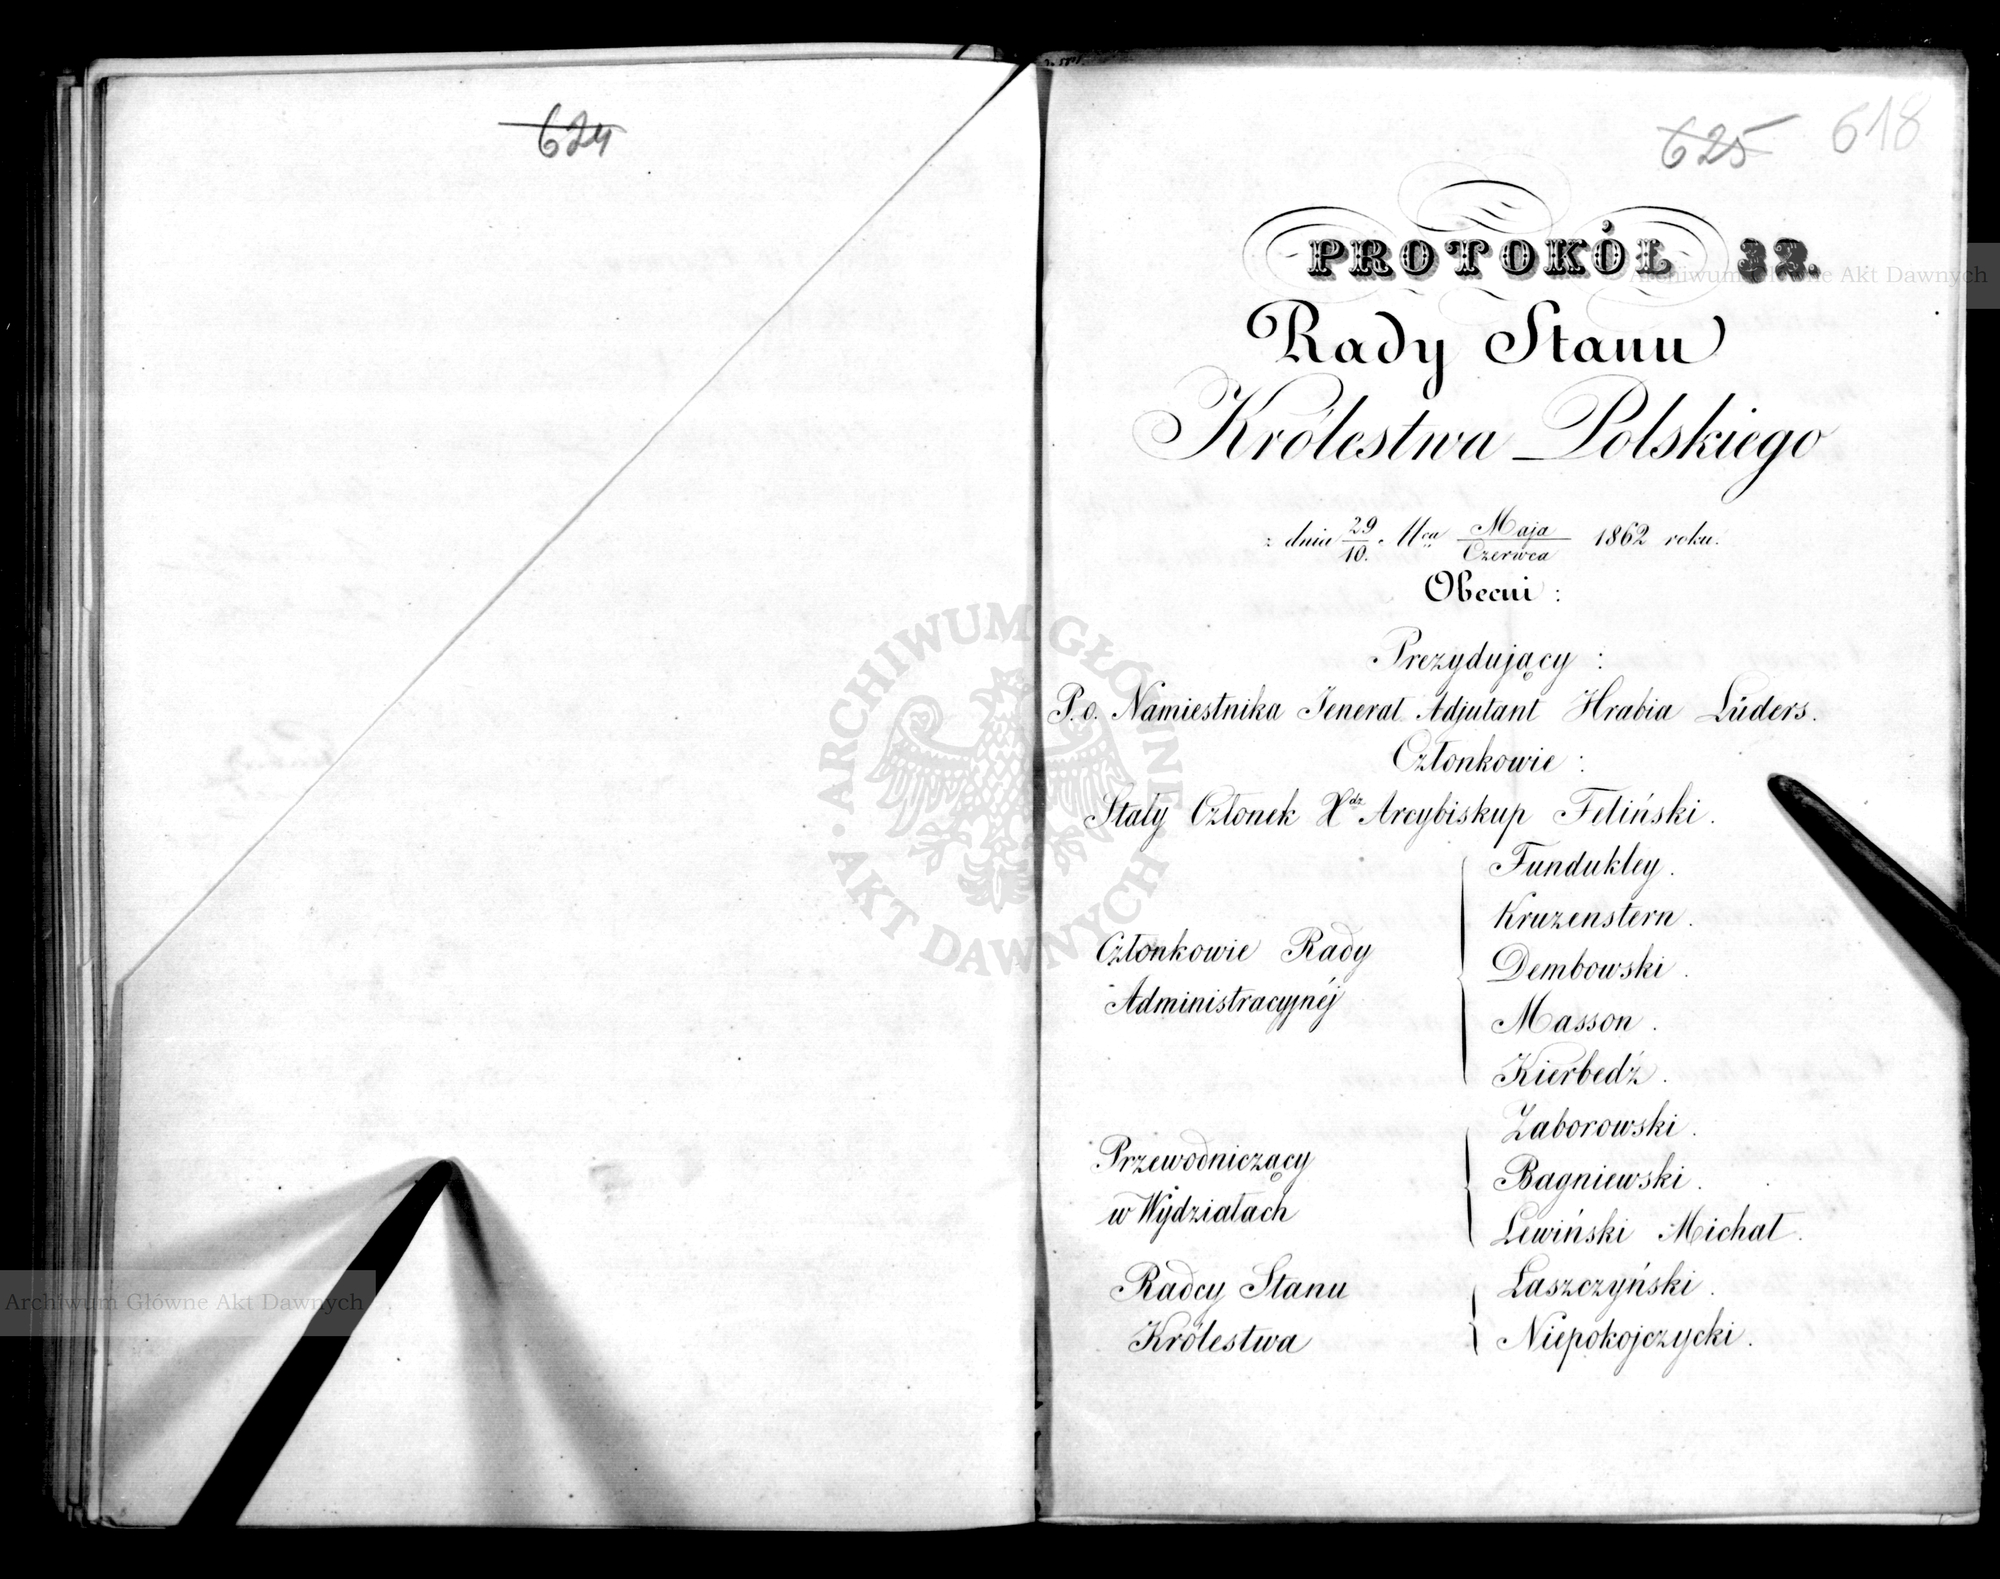 624
625 618
PROTOKÓŁ 33.
Rady Stanu
Królestwa Polskiego
z dnia 29/10. Mca Maja/Czerwca 1862 roku.
Obecni :
Prezydujący :
P. o. Namiestnika Jenerał Adjutant Hrabia Lüders.
Członkowie :
Stały Członek Xdz Arcybiskup Feliński.
Członkowie Rady
Administracyjnéj
Fundukley.
Kruzenstern.
Dembowski.
Masson.
Kierbedź.
Przewodniczący
w Wydziałach
Zaborowski.
Bagniewski.
Lewiński Michał.
Radcy Stanu
Królestwa
Łaszczyński.
Niepokojczycki.
Archiwum Główne Akt Dawnych
ARCHIWUM GŁÓWNE · AKT DAWNYCH ·
Archiwum Główne Akt Dawnych